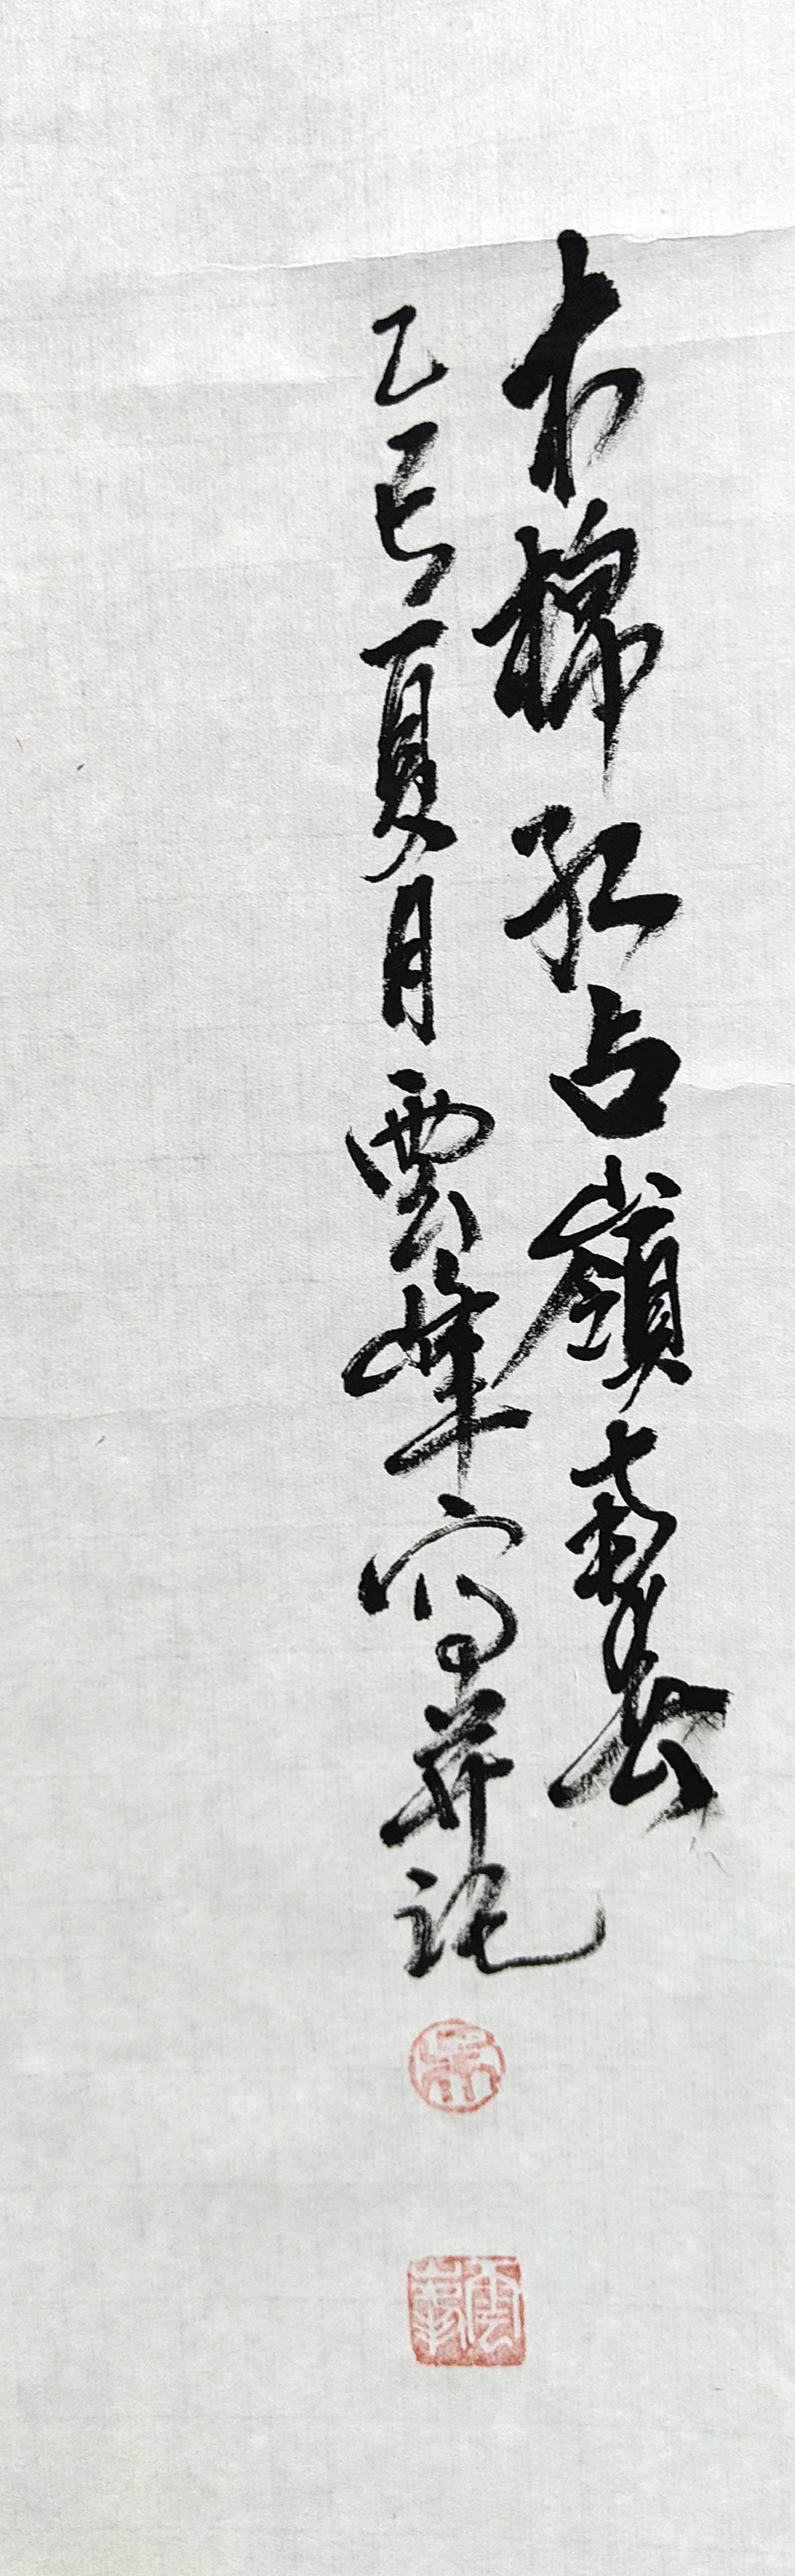 木棉紅占嶺南春
乙巳夏月雲峰寫并記